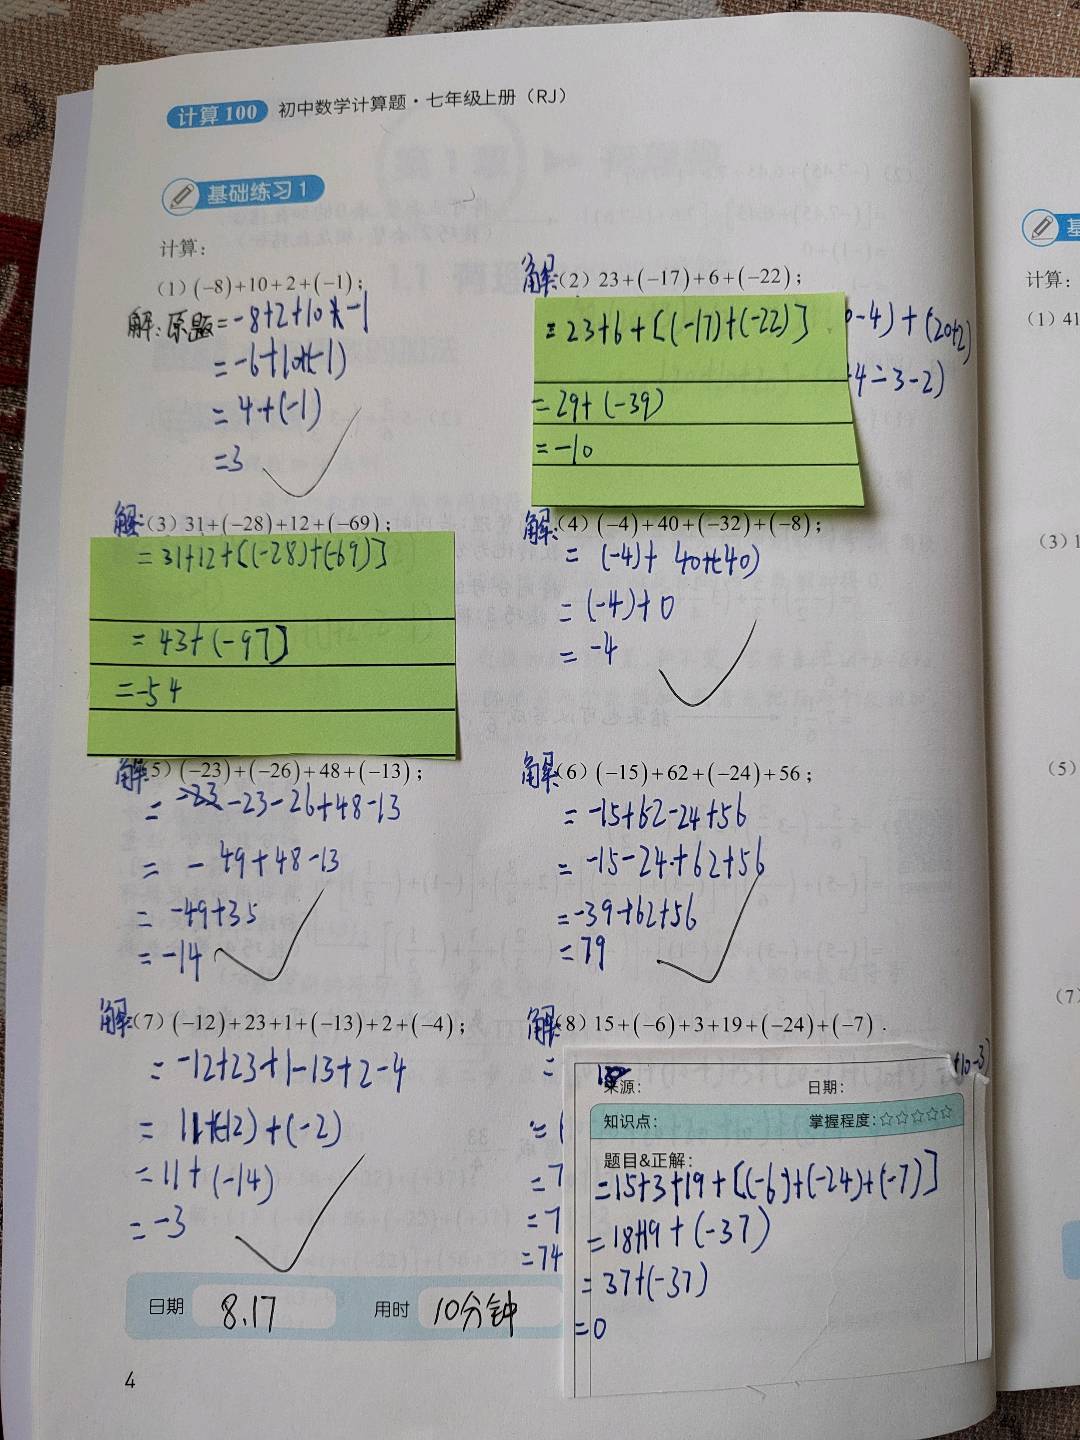 计算100 初中数学计算题·七年级上册（RJ）
基础练习1
计算：
（1）(−8)+10+2+(−1)；
解：原题=-8+2+10-1
=-6+10+(-1)
=4+(-1)
=3
解:（2）23+(−17)+6+(−22)；
=23+6+[(-17)+(-22)]
=29+(-39)
=-10
-4)+(20+2)
4÷3-2)
解:（3）31+(−28)+12+(−69)；
=31+12+[(-28)+(-69)]
=43+(-97]
=-54
解:（4）(−4)+40+(−32)+(−8)；
=(-4)+40+(-40)
=(-4)+0
=-4
解:5）(−23)+(−26)+48+(−13)；
=-23-26+48-13
=-49+48-13
=-49+35
=-14
解（6）(−15)+62+(−24)+56；
=-15+62-24+56
=-15-24+62+56
=-39+62+56
=79
解:（7）(−12)+23+1+(−13)+2+(−4)；
=-12+23+1-13+2-4
=11+(-12)+(-2)
=11+(-14)
=-3
解:8）15+(−6)+3+19+(−24)+(−7).
=
=(
=7
=7
=74
(10-3)
来源： 日期：
知识点： 掌握程度：☆☆☆☆☆
题目&正解：
=15+3+19+[(-6)+(-24)+(-7)]
=18+19+(-37)
=37+(-37)
=0
日期 8.17 用时 10分钟
4
基
计算：
（1）41
（3）1
（5）
（7）